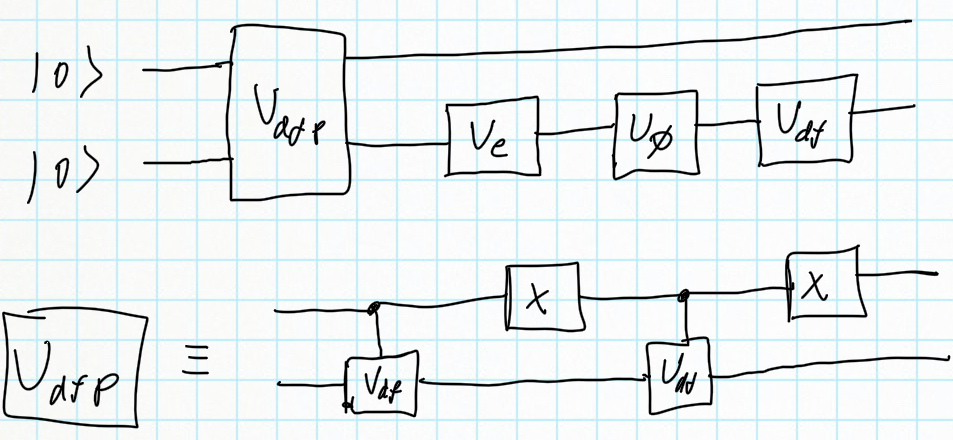 |0⟩
|0⟩
U_dfp
U_e
U_ϕ
U_df
U_dfp ≡
X
X
U_df
U_df